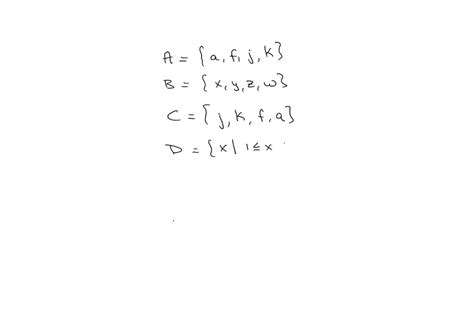 A = {a, f, j, k}
B = {x, y, z, w}
C = {j, k, f, a}
D = {x | 1 ≤ x